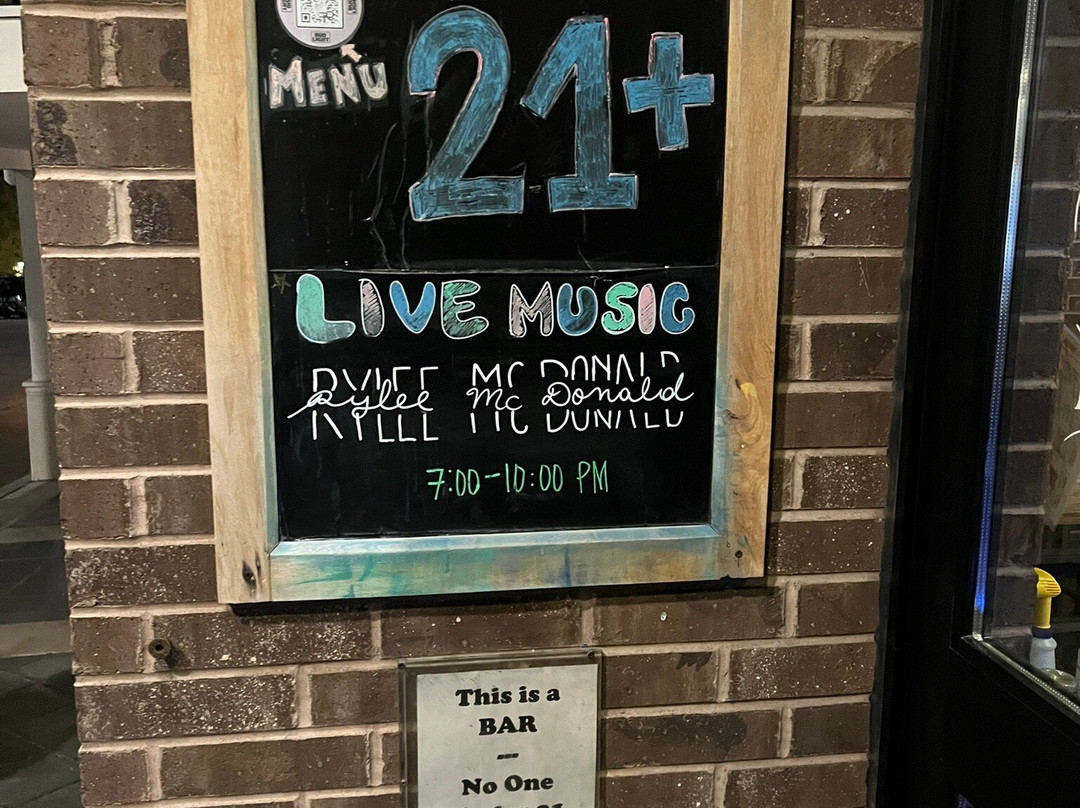 BUD LIGHT
MENU
21+
LIVE MUSIC
RYLEE MC DONALD
Rylee Mc Donald
7:00-10:00 PM
This is a
BAR
No One